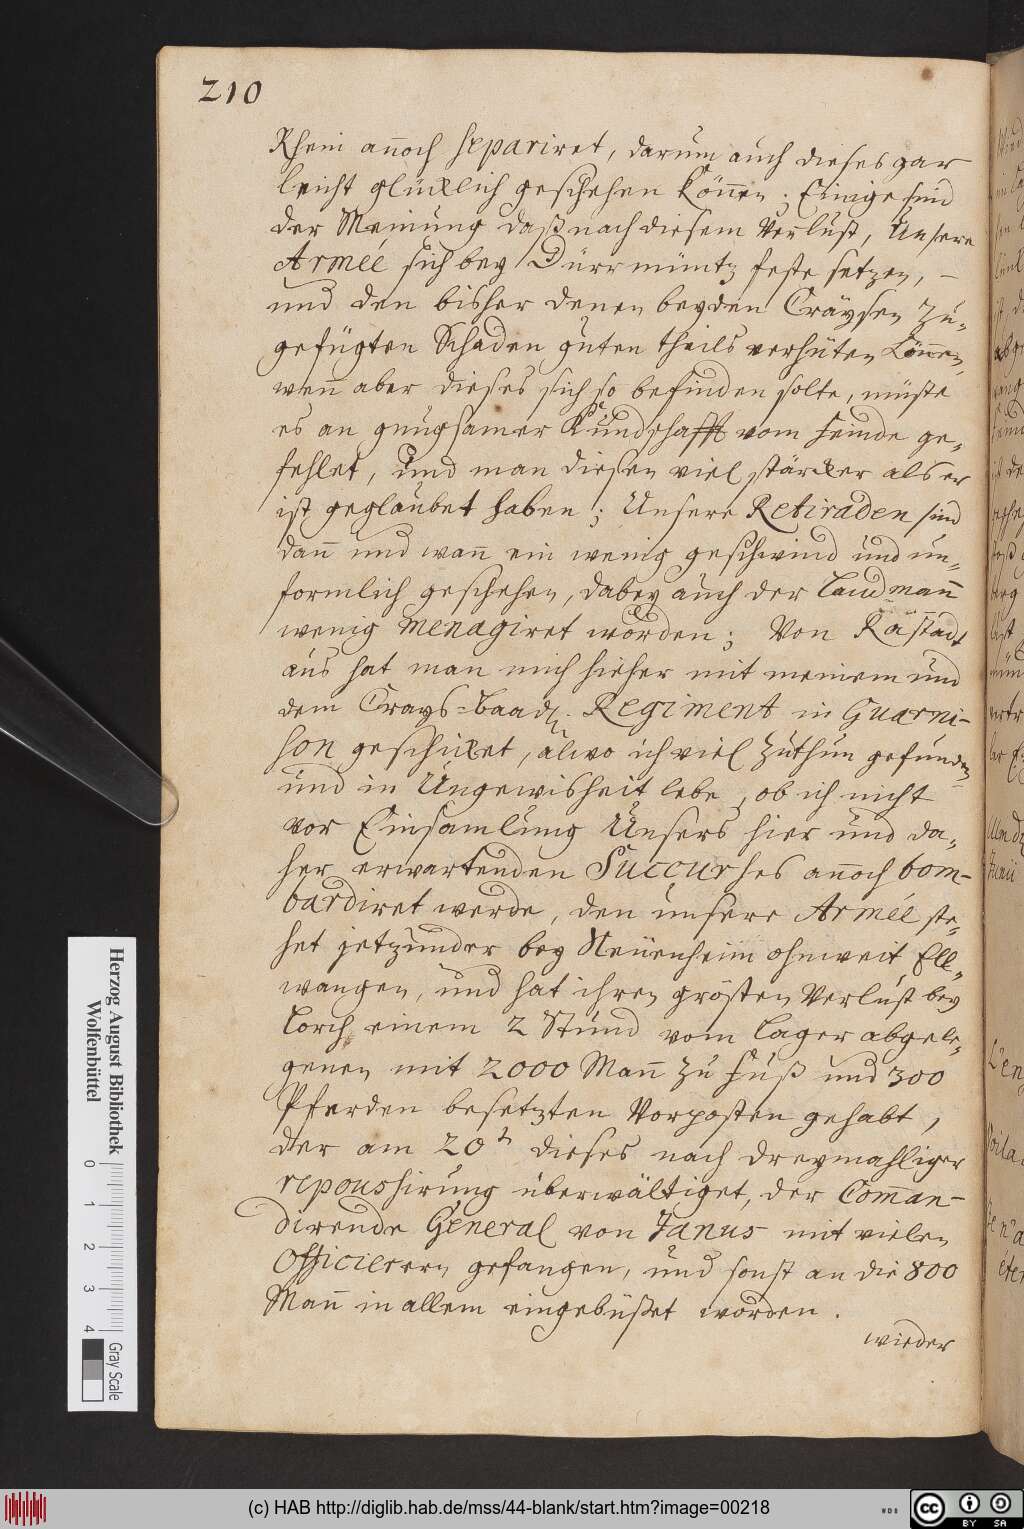 210
Rhein annoch separiret, darum auch dieses gar
leicht glücklich geschehen können; Einige sind
der Meinung daß nach diesem Verlust, Unsere
Armée sich bey Dürrmüntz feste setzen, –
und den bisher denen beyden Cräysen zu-
gefügten Schaden guten theils verhüten können,
wen̄ aber dieses sich so befinden solte, müste
es an gnugsamer Kundschafft vom Feinde ge-
fehlet, und man diesen viel stärcker als er
ist geglaubet haben; Unsere Retiraden sind
dan̄ und wan̄ ein wenig geschwind und un-
formlich geschehen, dabey auch der Landman̄
wenig menagiret worden; Von Rastadt
aus hat man mich hieher mit meinem und
dem Crays-Baad. Regiment in Guarni-
son geschicket, alwo ich viel zuthun gefunden
und in Ungewisheit lebe, ob ich nicht
vor Einsamlung Unsers hier und da-
her erwartenden Succurses annoch bom-
bardiret werde, den unsere Armée ste-
het jetzunder bey Neüenheim ohnweit Ell-
wangen, und hat ihren grösten Verlust bey
Lorch einem 2 Stund vom Lager abgele-
genen mit 2000 Man̄ zu Fuß und 300
Pferden besetzten Vorposten gehabt,
der am 20t dieses nach dreymahliger
repoussirung überwältiget, der Com̄an-
dirende General von Janus mit vielen
Officierern gefangen, und sonst an die 800
Man̄ in allem eingebüßet worden.
wieder
Herzog August Bibliothek
Wolfenbüttel
0 1 2 3 4
Gray Scale
(c) HAB http://diglib.hab.de/mss/44-blank/start.htm?image=00218
WDB
cc BY SA